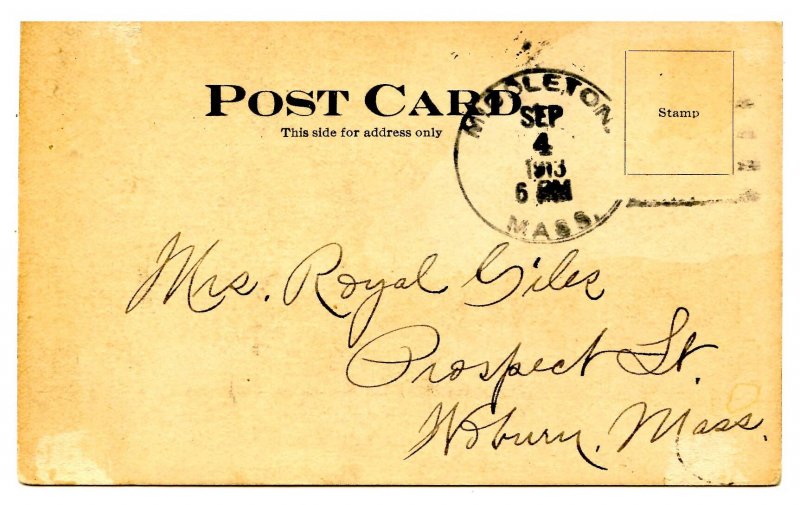 POST CARD
This side for address only
MIDDLETON.
SEP
4
1913
6 PM
MASS.
Stamp
Mrs. Royal Giles
Prospect St.
Woburn, Mass.